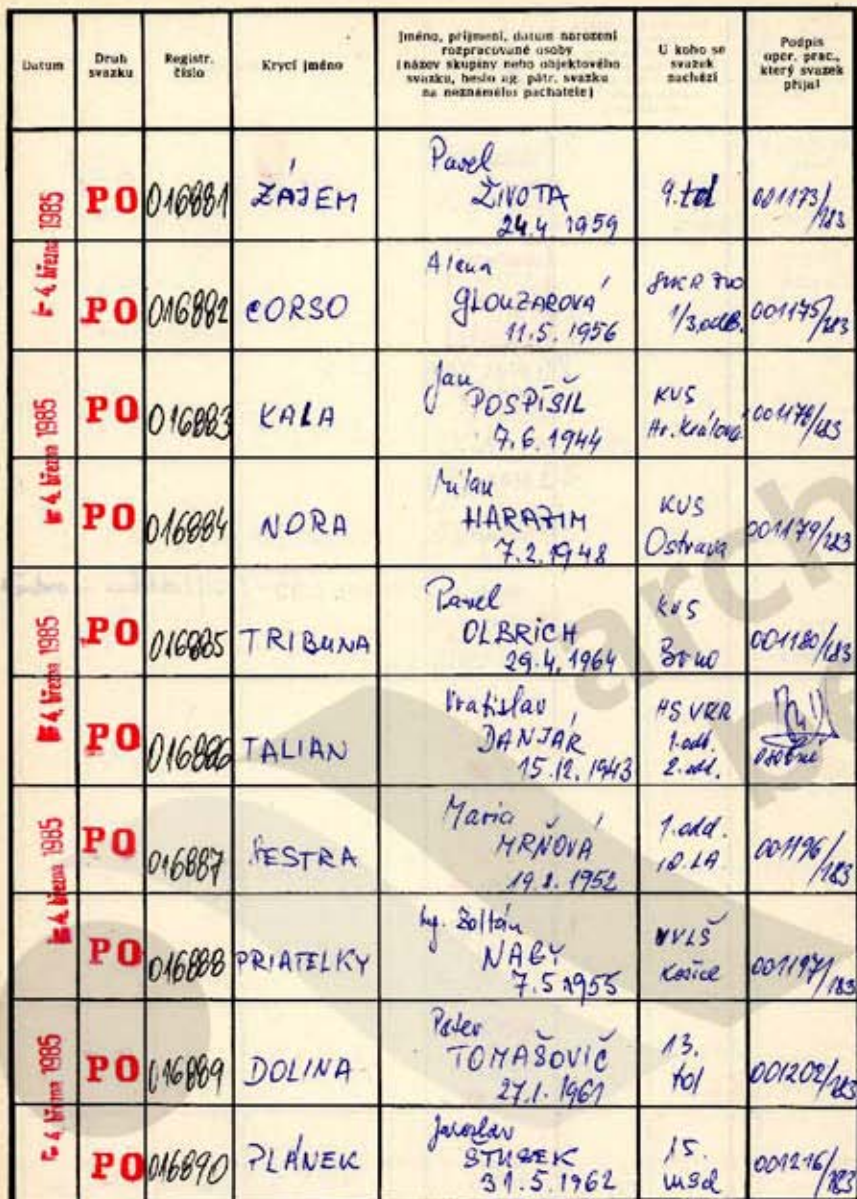 Datum
Druh
svazku
Registr.
číslo
Krycí jméno
Jméno, příjmení, datum narození
rozpracované osoby
(název skupiny nebo objektového
svazku, heslo ag. pátr. svazku
na neznámého pachatele)
U koho se
svazek
nachází
Podpis
oper. prac.,
který svazek
přijal
4. března 1985
PO
016881
ZÁJEM
Pavel
ŽIVOTA
24.4 1959
9. tol
001173/183
PO
016882
CORSO
Alena
GLOUZAROVÁ
11.5. 1956
1/3.odb.
001175/183
4. března 1985
PO
016883
KALA
Jan
POSPÍŠIL
7.6. 1944
KUS
Hr. Králové
001178/183
PO
016884
NORA
Milan
HARAZIM
7.2. 1948
KUS
Ostrava
001179/183
4. března 1985
PO
016885
TRIBUNA
Pavel
OLBRICH
29.4. 1964
KUS
Brno
001180/183
PO
016886
TALIAN
Vratislav
DANJAR
15.12. 1943
HS VKR
1. odb.
2. odd.
osobně
4. března 1985
PO
016887
SESTRA
Maria
MRŇOVÁ
19.8. 1952
1. odd.
10.LA
001196/183
PO
016888
PRIATELKY
Ing. Zoltán
NAGY
7.5 1955
VVLŠ
Košice
001197/183
4. března 1985
PO
016889
DOLINA
Peter
TOMAŠOVIČ
27.1. 1961
13.
tol
001202/183
PO
016890
PLÁNEK
Jaroslav
31.5. 1962
15.
msd
001216/183
arch